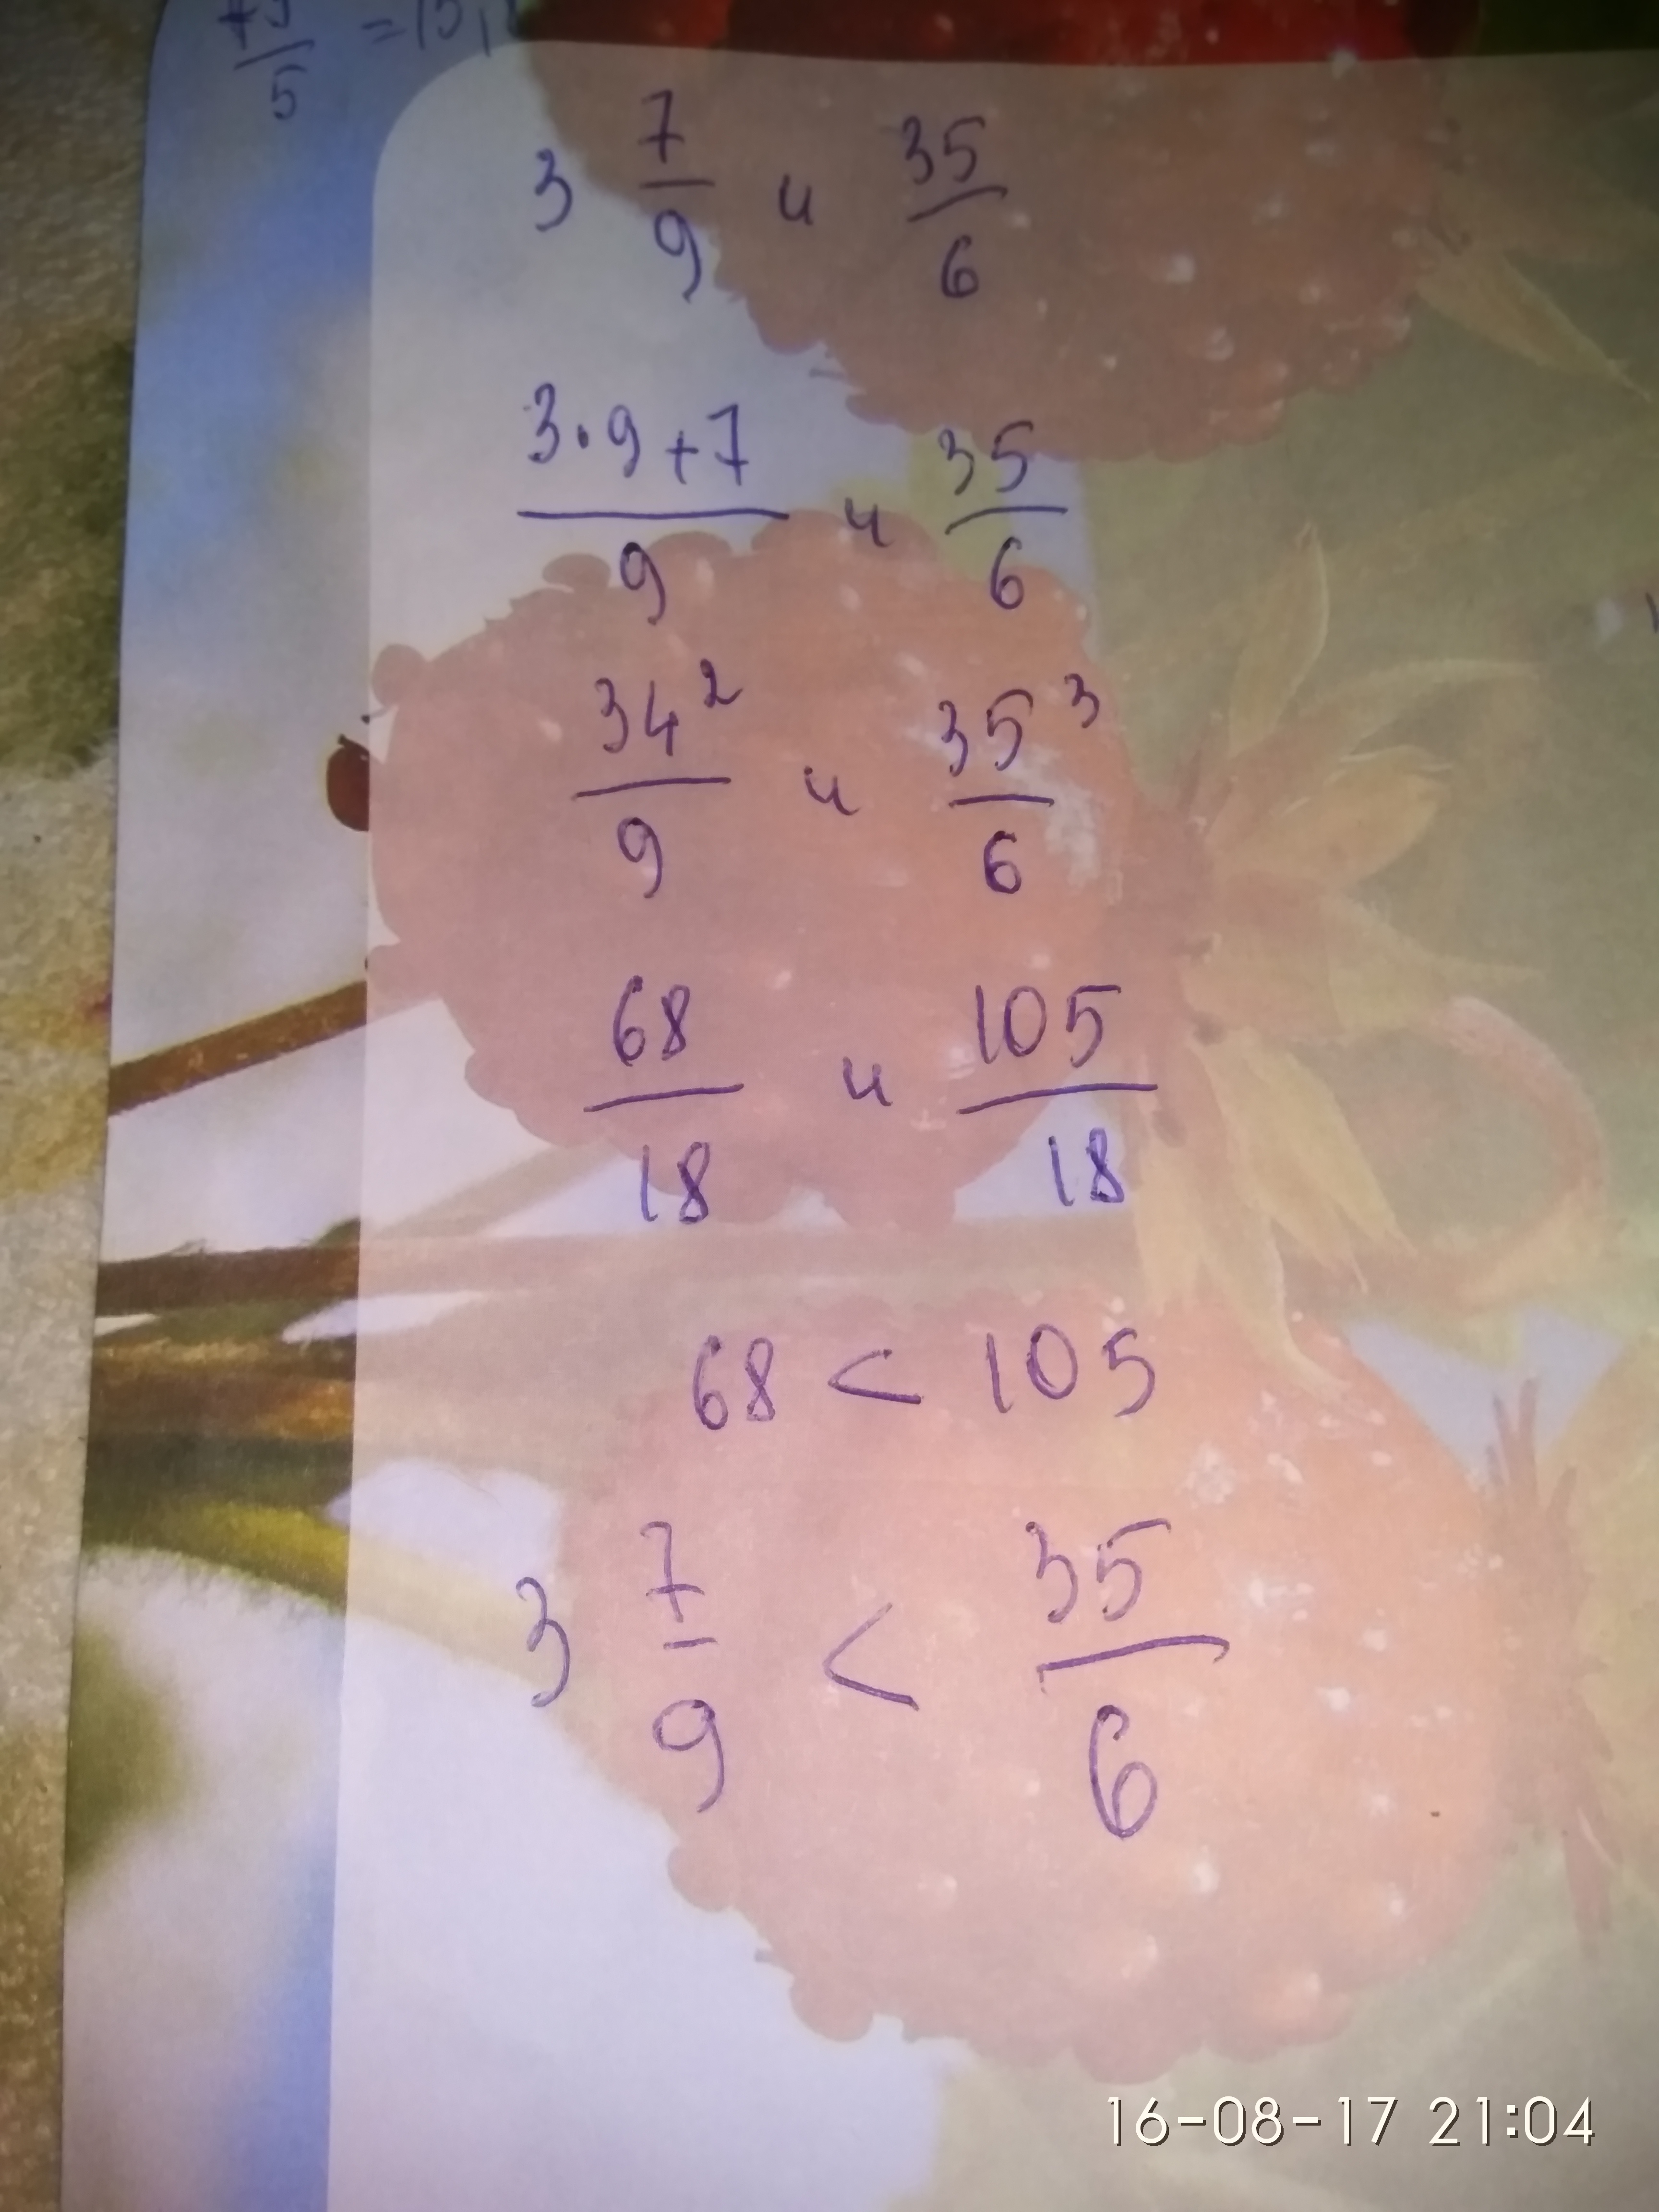 5
3 7/9 и 35/6
3·9+7/9 и 35/6
34²/9 и 35³/6
68/18 и 105/18
68 < 105
3 7/9 < 35/6
16-08-17 21:04